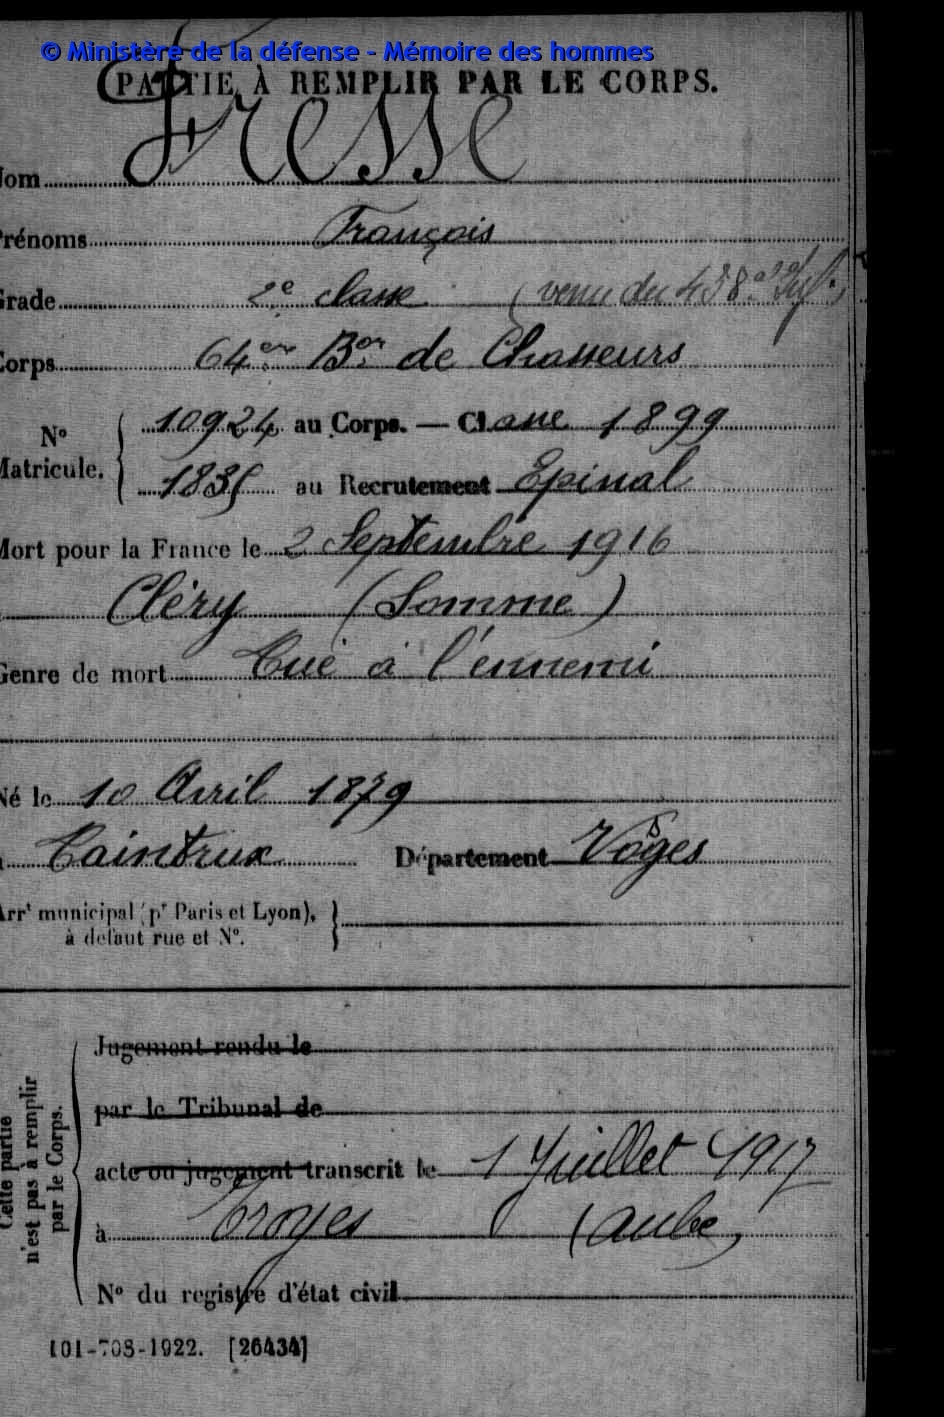 © Ministère de la défense - Mémoire des hommes
PARTIE À REMPLIR PAR LE CORPS.
Nom Fresse
Prénoms François
Grade 2e classe (venu du 458e d'Inf.)
Corps 64em Bon de Chasseurs
No Matricule. { 10924 au Corps. — Classe 1899
1835 au Recrutement Epinal
Mort pour la France le 2 Septembre 1916
à Cléry (Somme)
Genre de mort Tué à l'ennemi
Né le 10 Avril 1879
à Taintrux Département Vosges
Arrt municipal (pr Paris et Lyon),
à défaut rue et No.
Cette partie
n'est pas à remplir
par le Corps.
Jugement rendu le
par le Tribunal de
acte ou jugement transcrit le 1 Juillet 1917
à Troyes (Aube)
No du registre d'état civil
101-708-1922. [26434]